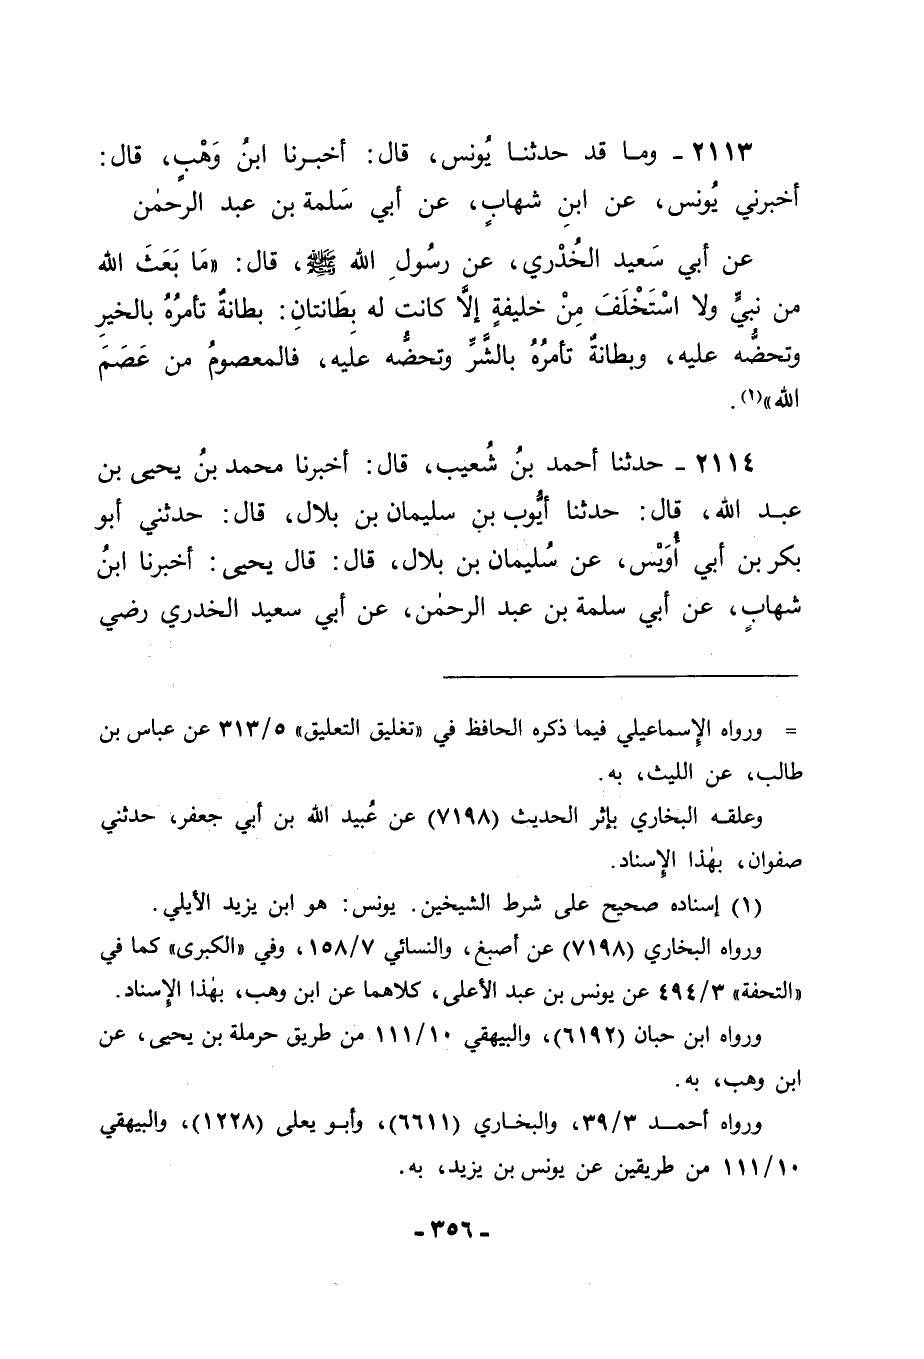 ٢١١٣ ـ وما قد حدثنا يُونس، قال: أخبرنا ابنُ وَهْبٍ، قال:
أخبرني يُونس، عن ابنِ شهابٍ، عن أبي سَلمة بن عبد الرحمٰن
عن أبي سَعيد الخُدْري، عن رسُولِ الله ﷺ، قال: «مَا بَعَثَ الله
من نبيٍّ ولا اسْتَخْلَفَ مِنْ خليفةٍ إلَّا كانت له بِطَانتانِ: بطانةٌ تأمرُهُ بالخيرِ
وتحضُّه عليه، وبطانةٌ تأمرُهُ بالشَّرِّ وتحضُّه عليه، فالمعصومُ من عَصَمَ
الله»(١).
٢١١٤ ـ حدثنا أحمد بنُ شُعيب، قال: أخبرنا محمد بنُ يحيى بن
عبد الله، قال: حدثنا أيُّوب بن سليمان بن بلال، قال: حدثني أبو
بكر بن أبي أُوَيْس، عن سُليمان بن بلال، قال: قال يحيى: أخبرنا ابنُ
شهابٍ، عن أبي سلمة بن عبد الرحمٰن، عن أبي سعيد الخدري رضي
= ورواه الإسماعيلي فيما ذكره الحافظ في «تغليق التعليق» ٣١٣/٥ عن عباس بن
طالب، عن الليث، به.
وعلقه البخاري بإثر الحديث (٧١٩٨) عن عُبيد الله بن أبي جعفر، حدثني
صفوان، بهٰذا الإسناد.
(١) إسناده صحيح على شرط الشيخين. يونس: هو ابن يزيد الأيلي.
ورواه البخاري (٧١٩٨) عن أصبغ، والنسائي ١٥٨/٧، وفي «الكبرى» كما في
«التحفة» ٤٩٤/٣ عن يونس بن عبد الأعلى، كلاهما عن ابن وهب، بهٰذا الإسناد.
ورواه ابن حبان (٦١٩٢)، والبيهقي ١١١/١٠ من طريق حرملة بن يحيى، عن
ابن وهب، به.
ورواه أحمد ٣٩/٣، والبخاري (٦٦١١)، وأبو يعلى (١٢٢٨)، والبيهقي
١١١/١٠ من طريقين عن يونس بن يزيد، به.
ـ ٣٥٦ ـ